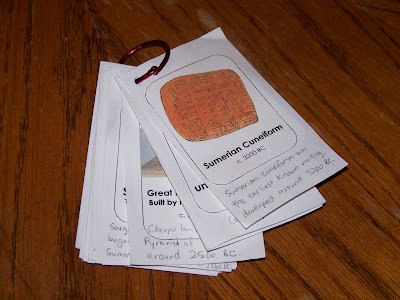 Sumerian Cuneiform
c. 3200 BC
Sumerian cuneiform was
the earliest known writing,
developed around 3200 BC.
un
Great
Built by
c.
Cheops
Pyramid of
around 2560 BC.
S
Sarg
began
Sumer